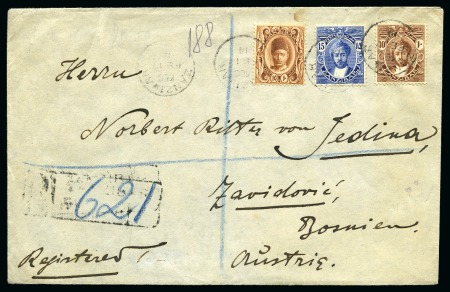 188
10
15
10
Herrn
Norbert Ritter von Jedina,
621
Zavidović,
Bosnien,
Registered
Austria.